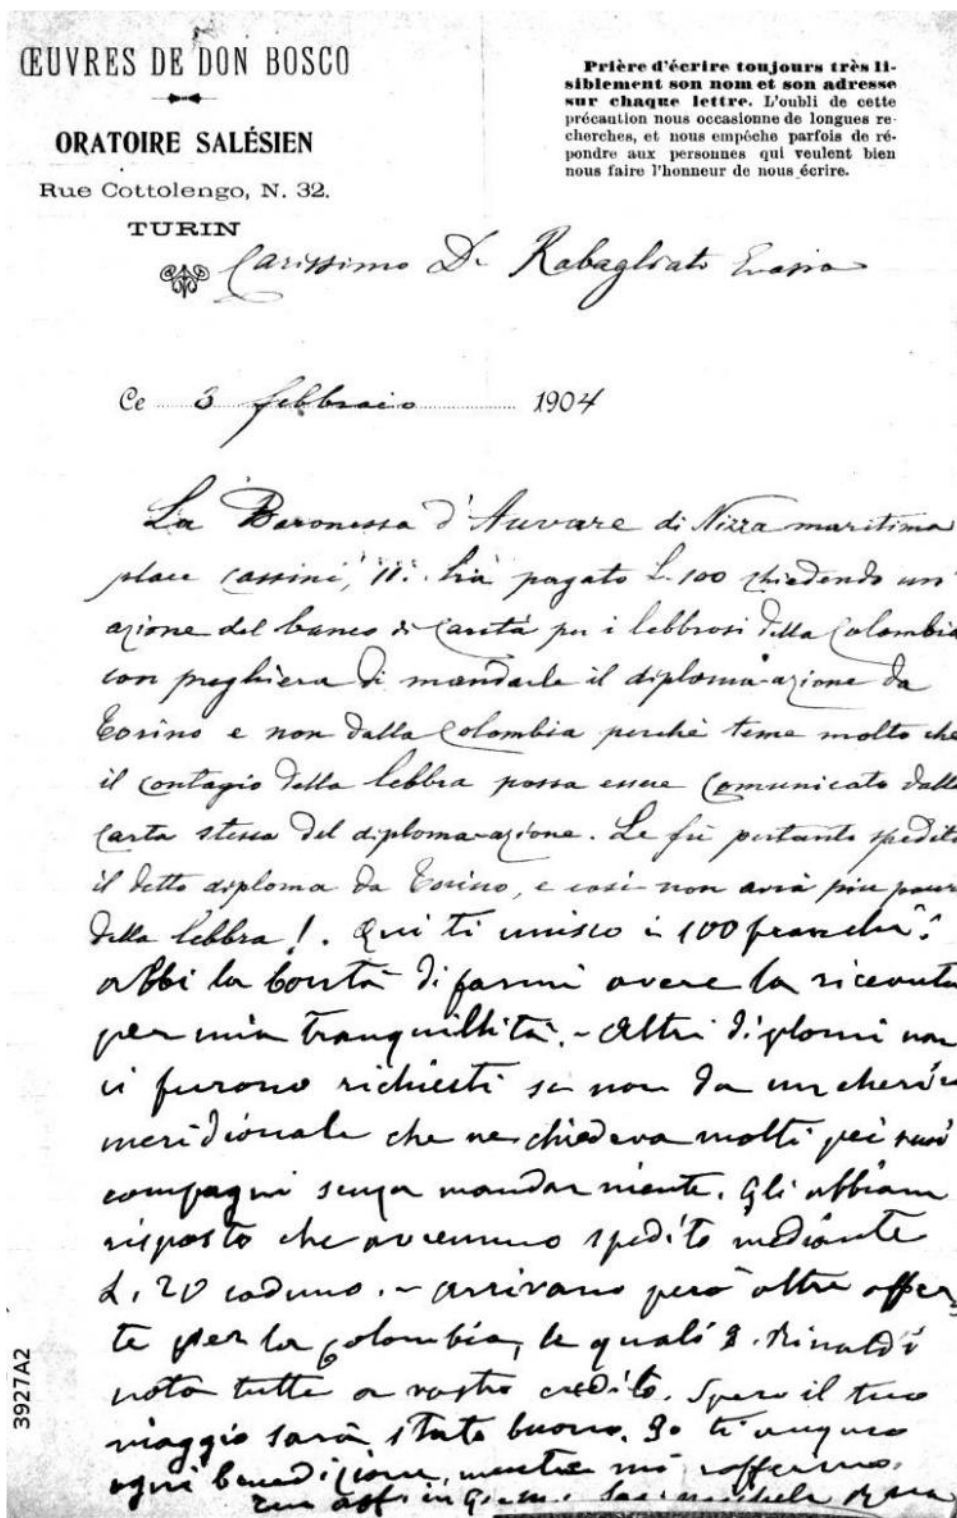 ŒUVRES DE DON BOSCO
ORATOIRE SALÉSIEN
Rue Cottolengo, N. 32.
TURIN
Prière d'écrire toujours très li-
siblement son nom et son adresse
sur chaque lettre. L'oubli de cette
précaution nous occasionne de longues re-
cherches, et nous empêche parfois de ré-
pondre aux personnes qui veulent bien
nous faire l'honneur de nous écrire.
Carissimo D. Rabagliati Evasio
Ce 3 febbraio 1904
La Baronessa d'Auvare di Nizza marittima
place Cassini, 11. ha pagato L. 100 chiedendo un'
azione del banco di Carità per i lebbrosi della Colombia
con preghiera di mandarle il diploma-azione da
Torino e non dalla Colombia perchè teme molto che
il contagio della lebbra possa essere comunicato dalla
carta stessa del diploma-azione. Le fu pertanto spedito
il detto diploma da Torino, e così non avrà più paura
della lebbra! Qui ti unisco i 100 franchi:
abbi la bontà di farmi avere la ricevuta
per mia tranquillità. - Altri diplomi non
ci furono richiesti se non da un
meridionale che ne chiedeva molti pei suoi
compagni senza mandar niente. Gli abbiam
risposto che avremmo spedito mediante
L. 20 caduno. - Arrivano però altre offer-
te per la Colombia, le quali D. Rinaldi
nota tutte a vostro credito. Spero il tuo
viaggio sarà stato buono. Io ti auguro
ogni benedizione, mentre mi raffermo.
tuo aff. in G.
3927A2